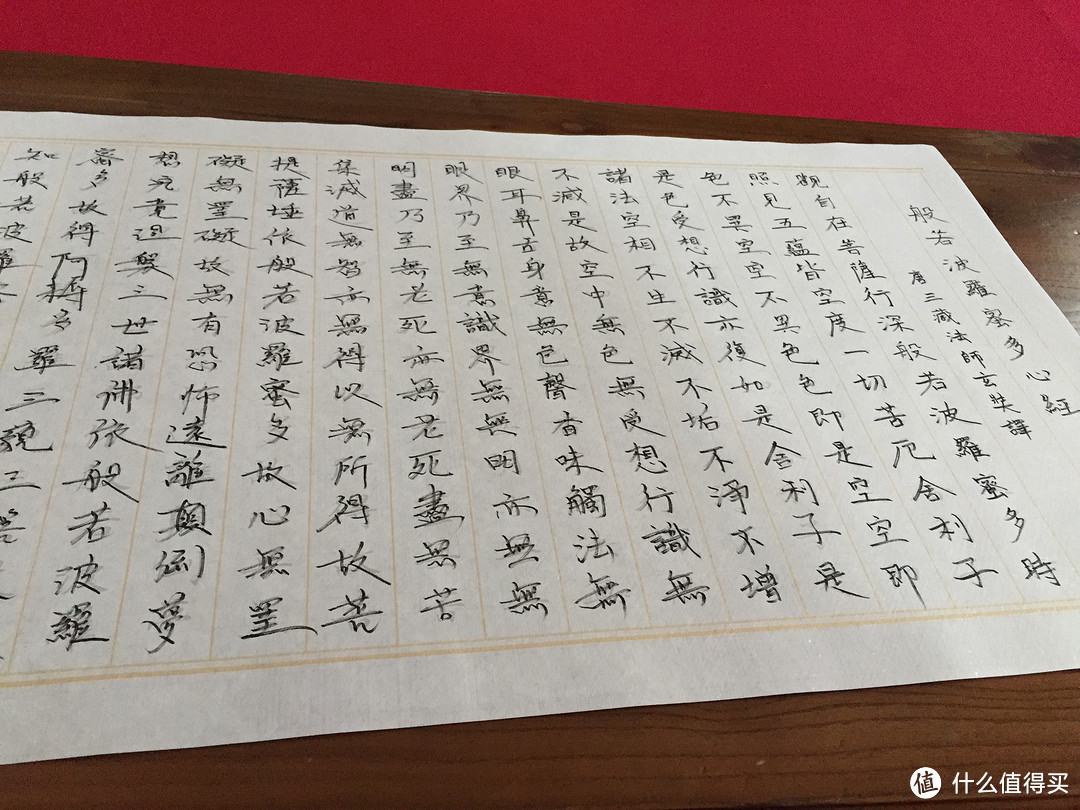 般若波羅蜜多心經
唐三藏法師玄奘譯
觀自在菩薩行深般若波羅蜜多時
照見五蘊皆空度一切苦厄舍利子
色不異空空不異色色即是空空即
是色受想行識亦復如是舍利子是
諸法空相不生不滅不垢不淨不增
不減是故空中無色無受想行識無
眼耳鼻舌身意無色聲香味觸法無
眼界乃至無意識界無無明亦無無
明盡乃至無老死亦無老死盡無苦
集滅道無智亦無得以無所得故菩
提薩埵依般若波羅蜜多故心無罣
礙無罣礙故無有恐怖遠離顛倒夢
想究竟涅槃三世諸佛依般若波羅
蜜多故得阿耨多羅三藐三菩
知般若波羅
值 什么值得买